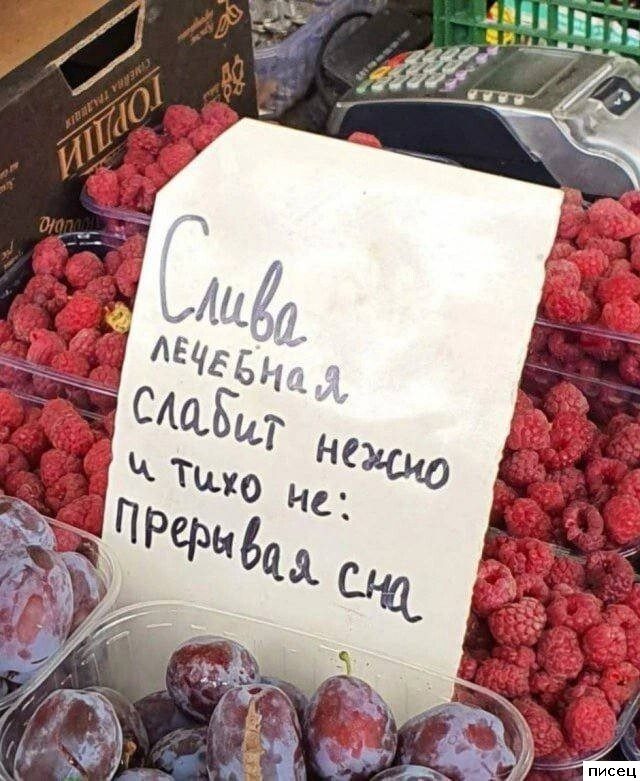 ГОРДІЙ
СІМЕЙНА ТРАДИЦІЯ
Слива
лечебная
слабит нежно
и тихо не:
прерывая сна
писец